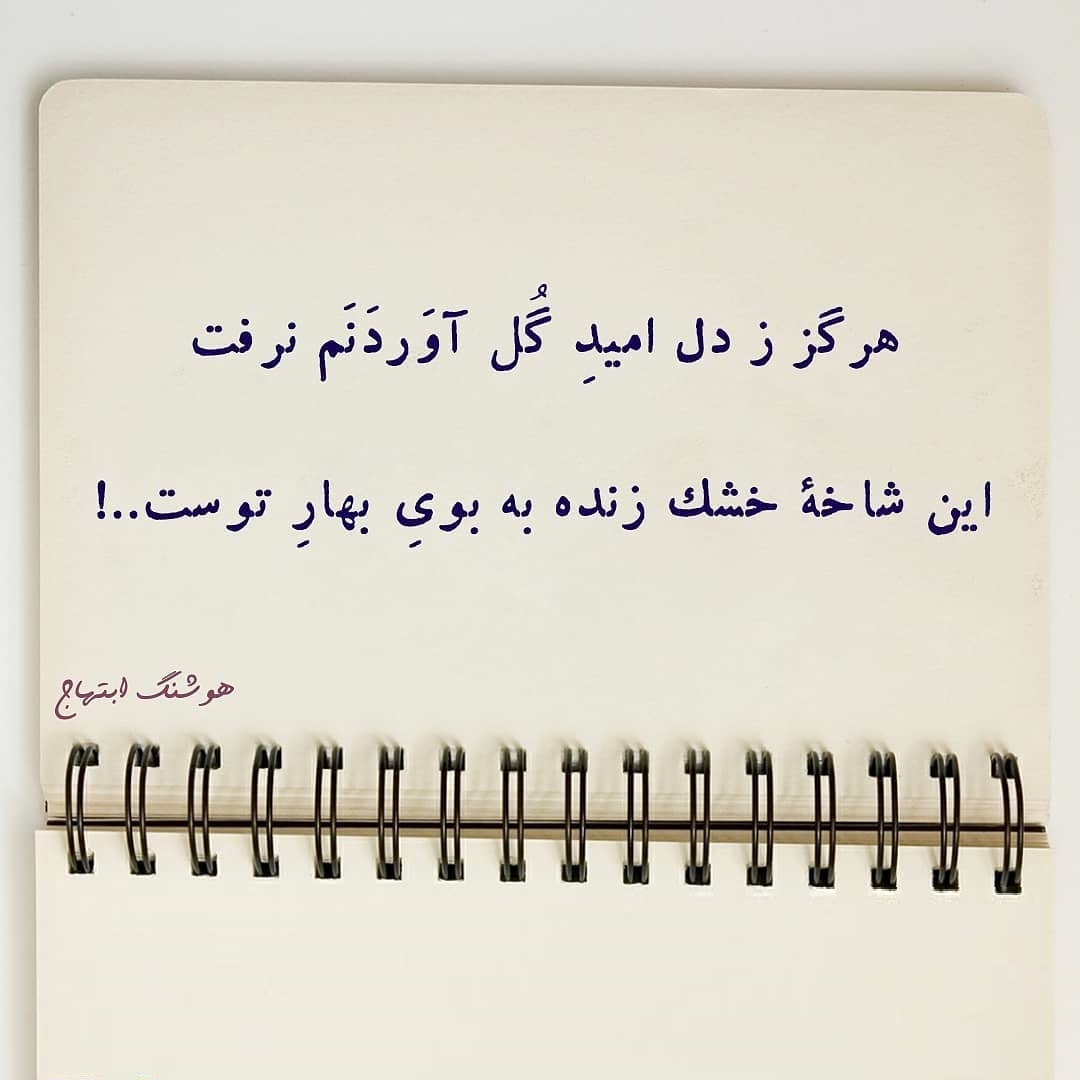 هرگز ز دل امیدِ گُل آوَردَنَم نرفت
این شاخهٔ خشك زنده به بویِ بهارِ توست..!
هوشنگ ابتهاج